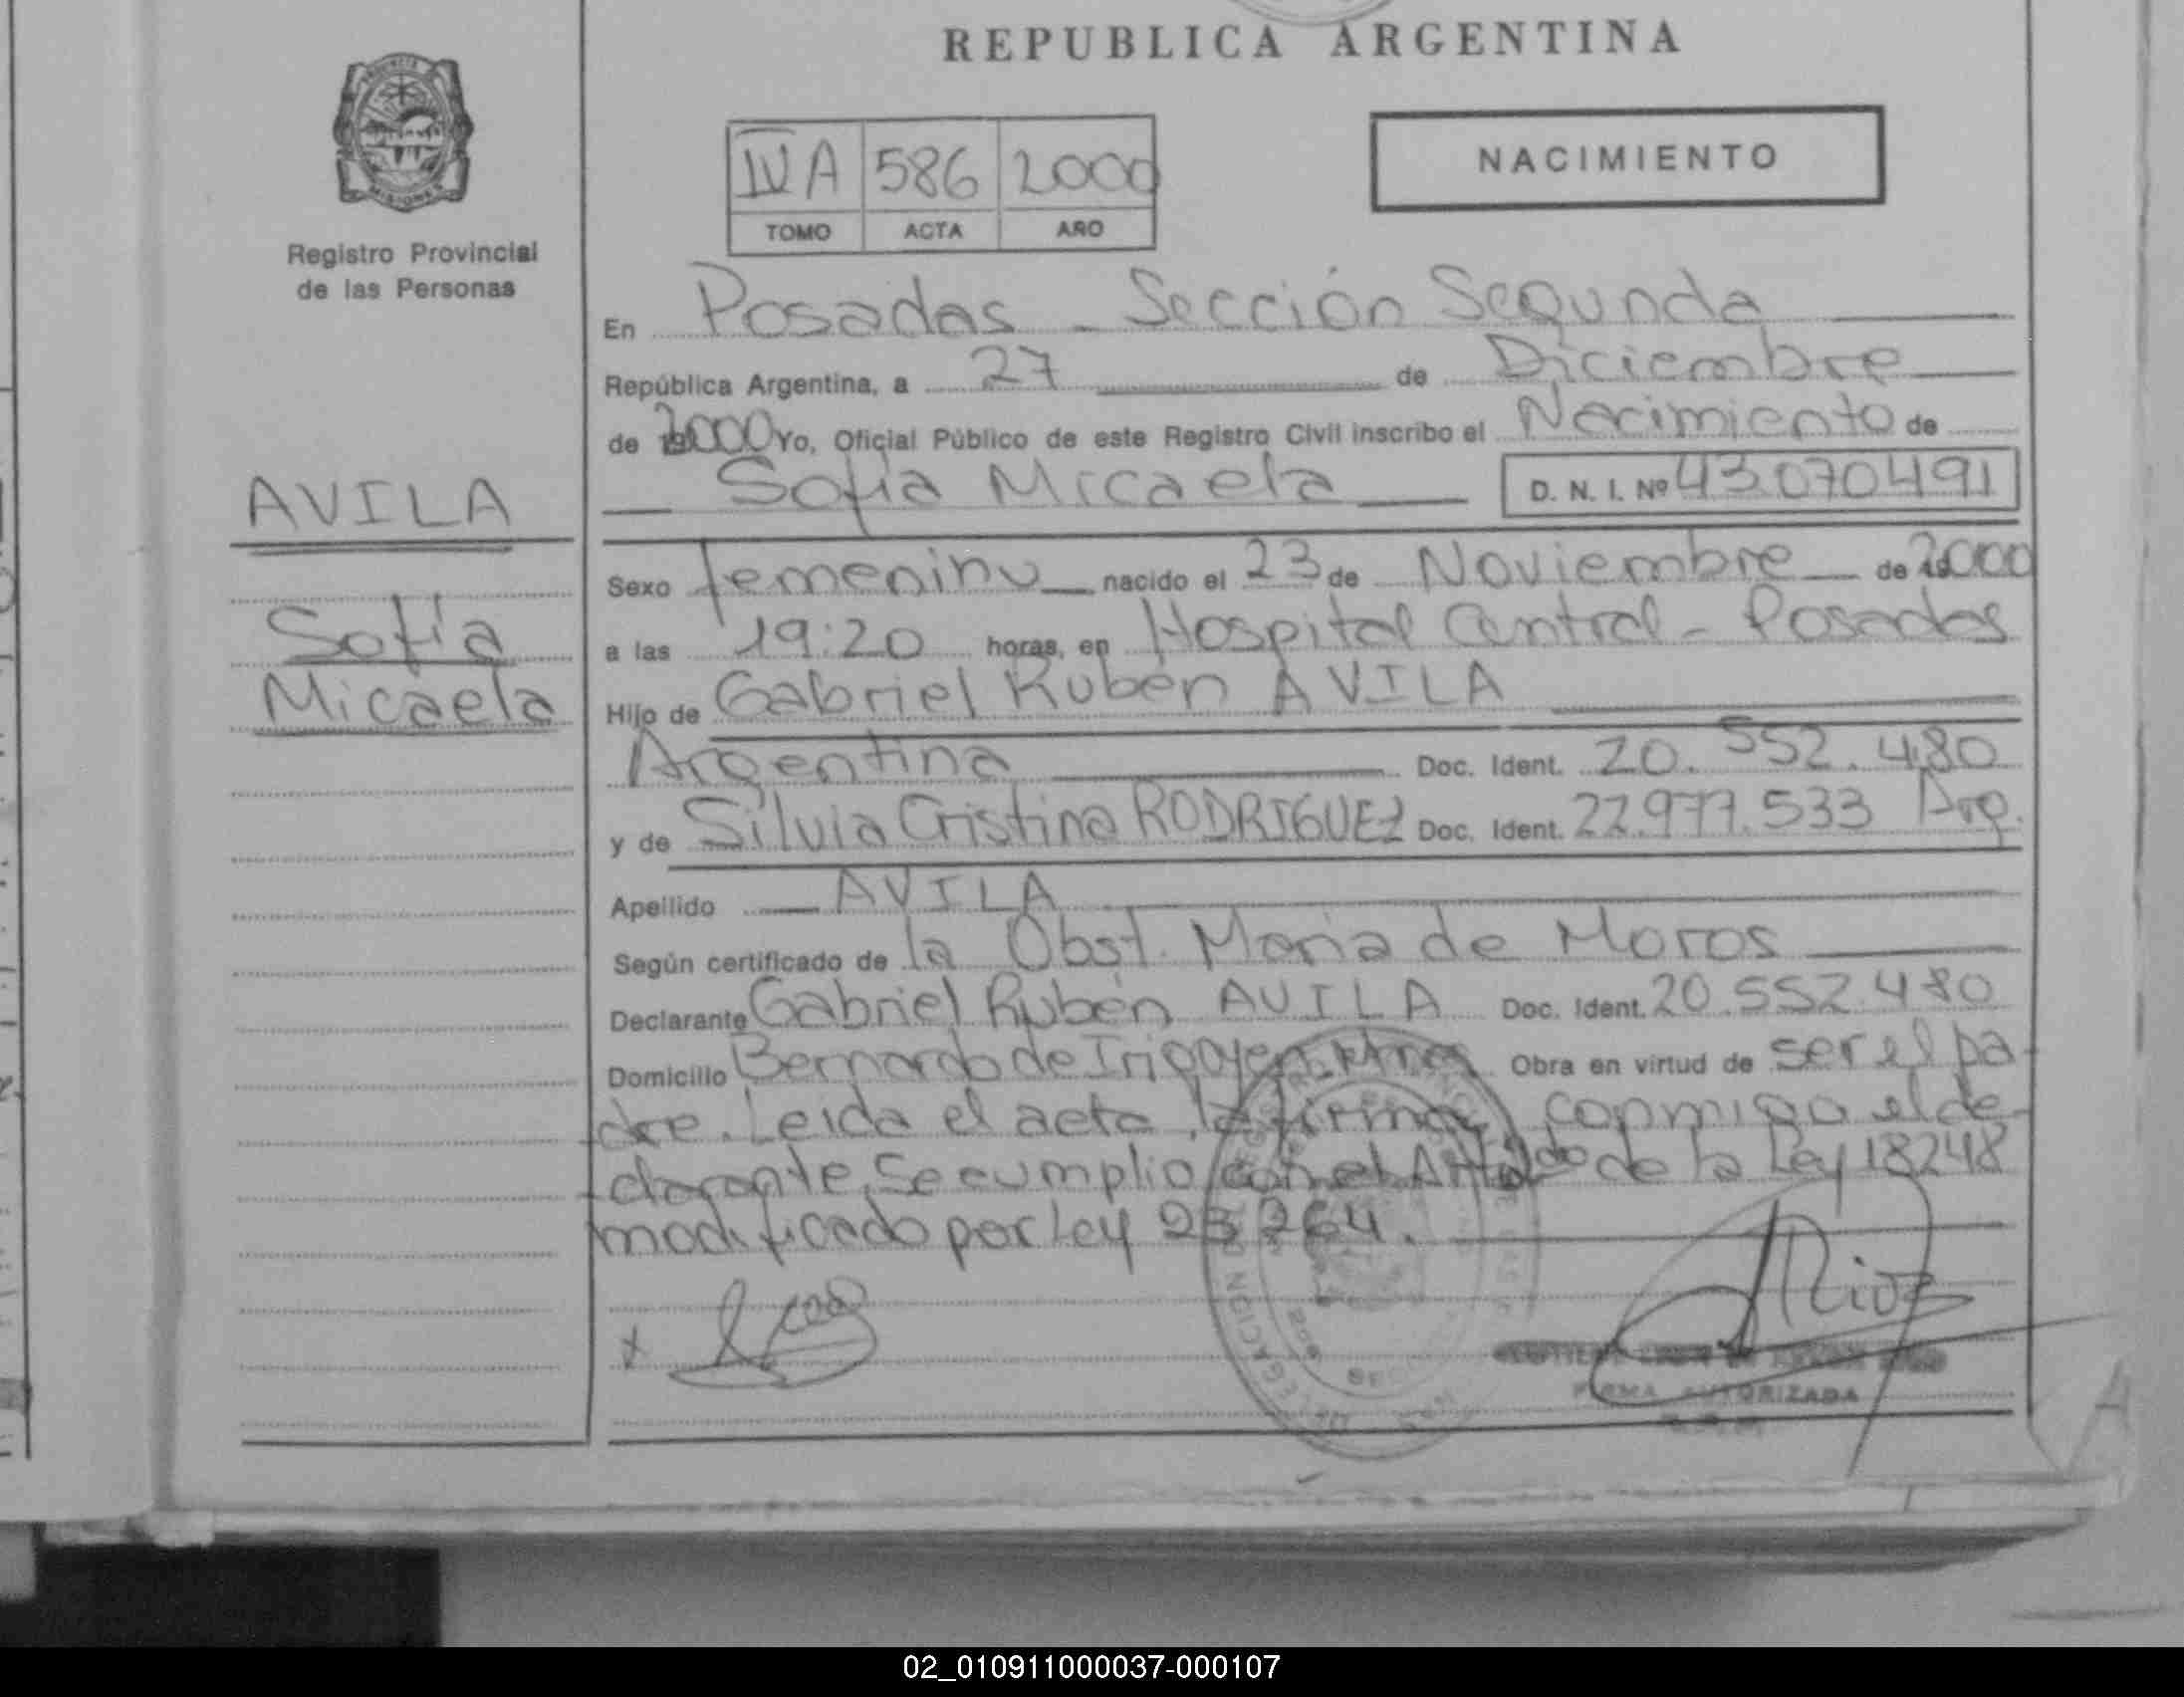 REPUBLICA ARGENTINA
PROVINCIA MISIONES
Registro Provincial
de las Personas
IV A 586 2000
TOMO ACTA AÑO
NACIMIENTO
En Posadas - Sección Segunda
República Argentina, a 27 de Diciembre
de 2000 Yo, Oficial Público de este Registro Civil inscribo el Nacimiento de
Sofía Micaela D. N. I. Nº 43.070.491
AVILA
Sofía
Micaela
Sexo femenino nacido el 23 de Noviembre de 2000
a las 19:20 horas, en Hospital Central - Posadas
Hijo de Gabriel Rubén AVILA
Argentina Doc. Ident. 20.552.480
y de Silvia Cristina RODRIGUEZ Doc. Ident. 22.977.533 Arg.
Apellido AVILA
Según certificado de la Obst. María de Moros
Declarante Gabriel Rubén AVILA Doc. Ident. 20.552.480
Domicilio Bernardo de Irigoyen Obra en virtud de ser el pa-
dre. Leida el acta, la firma conmigo el de-
clarante. Se cumplio con el de la Ley 18248
modificado por Ley 23264.
FIRMA AUTORIZADA
02_010911000037-000107